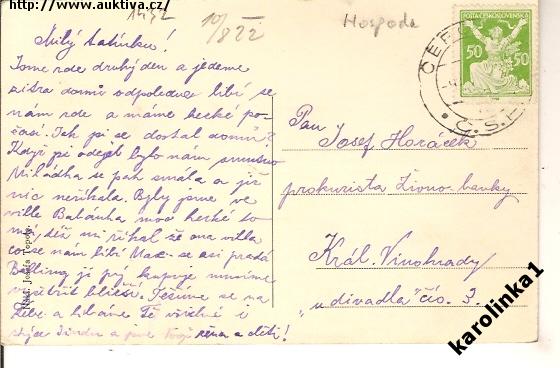 http://www.auktiva.cz
1472
10/8 22
Hospoda
POŠTA ČESKOSLOVENSKÁ
50 50
Milý tatínku!
Jsme zde druhý den a jedeme
zítra domů odpoledne líbí se
nám zde a máme hezké po-
časí. Jak jsi se dostal domů?
Když jsi odejel bylo nám smutno
Miládka se pak smála a již
nic neříkala. Byly jsme ve
ville moc hezké to
má, řekl mi říkal že ona villa
co se nám líbí se asi prodá
je prý kupuje musíme
vyšetřit bližší. Těšíme se na
Tebe a líbáme Tě všichni i
a jsme Tvoji žena a děti!
Pan
Josef Horáček
prokurista Živno-banky
Král. Vinohrady
"u divadla" čís. 3.
karolinka1